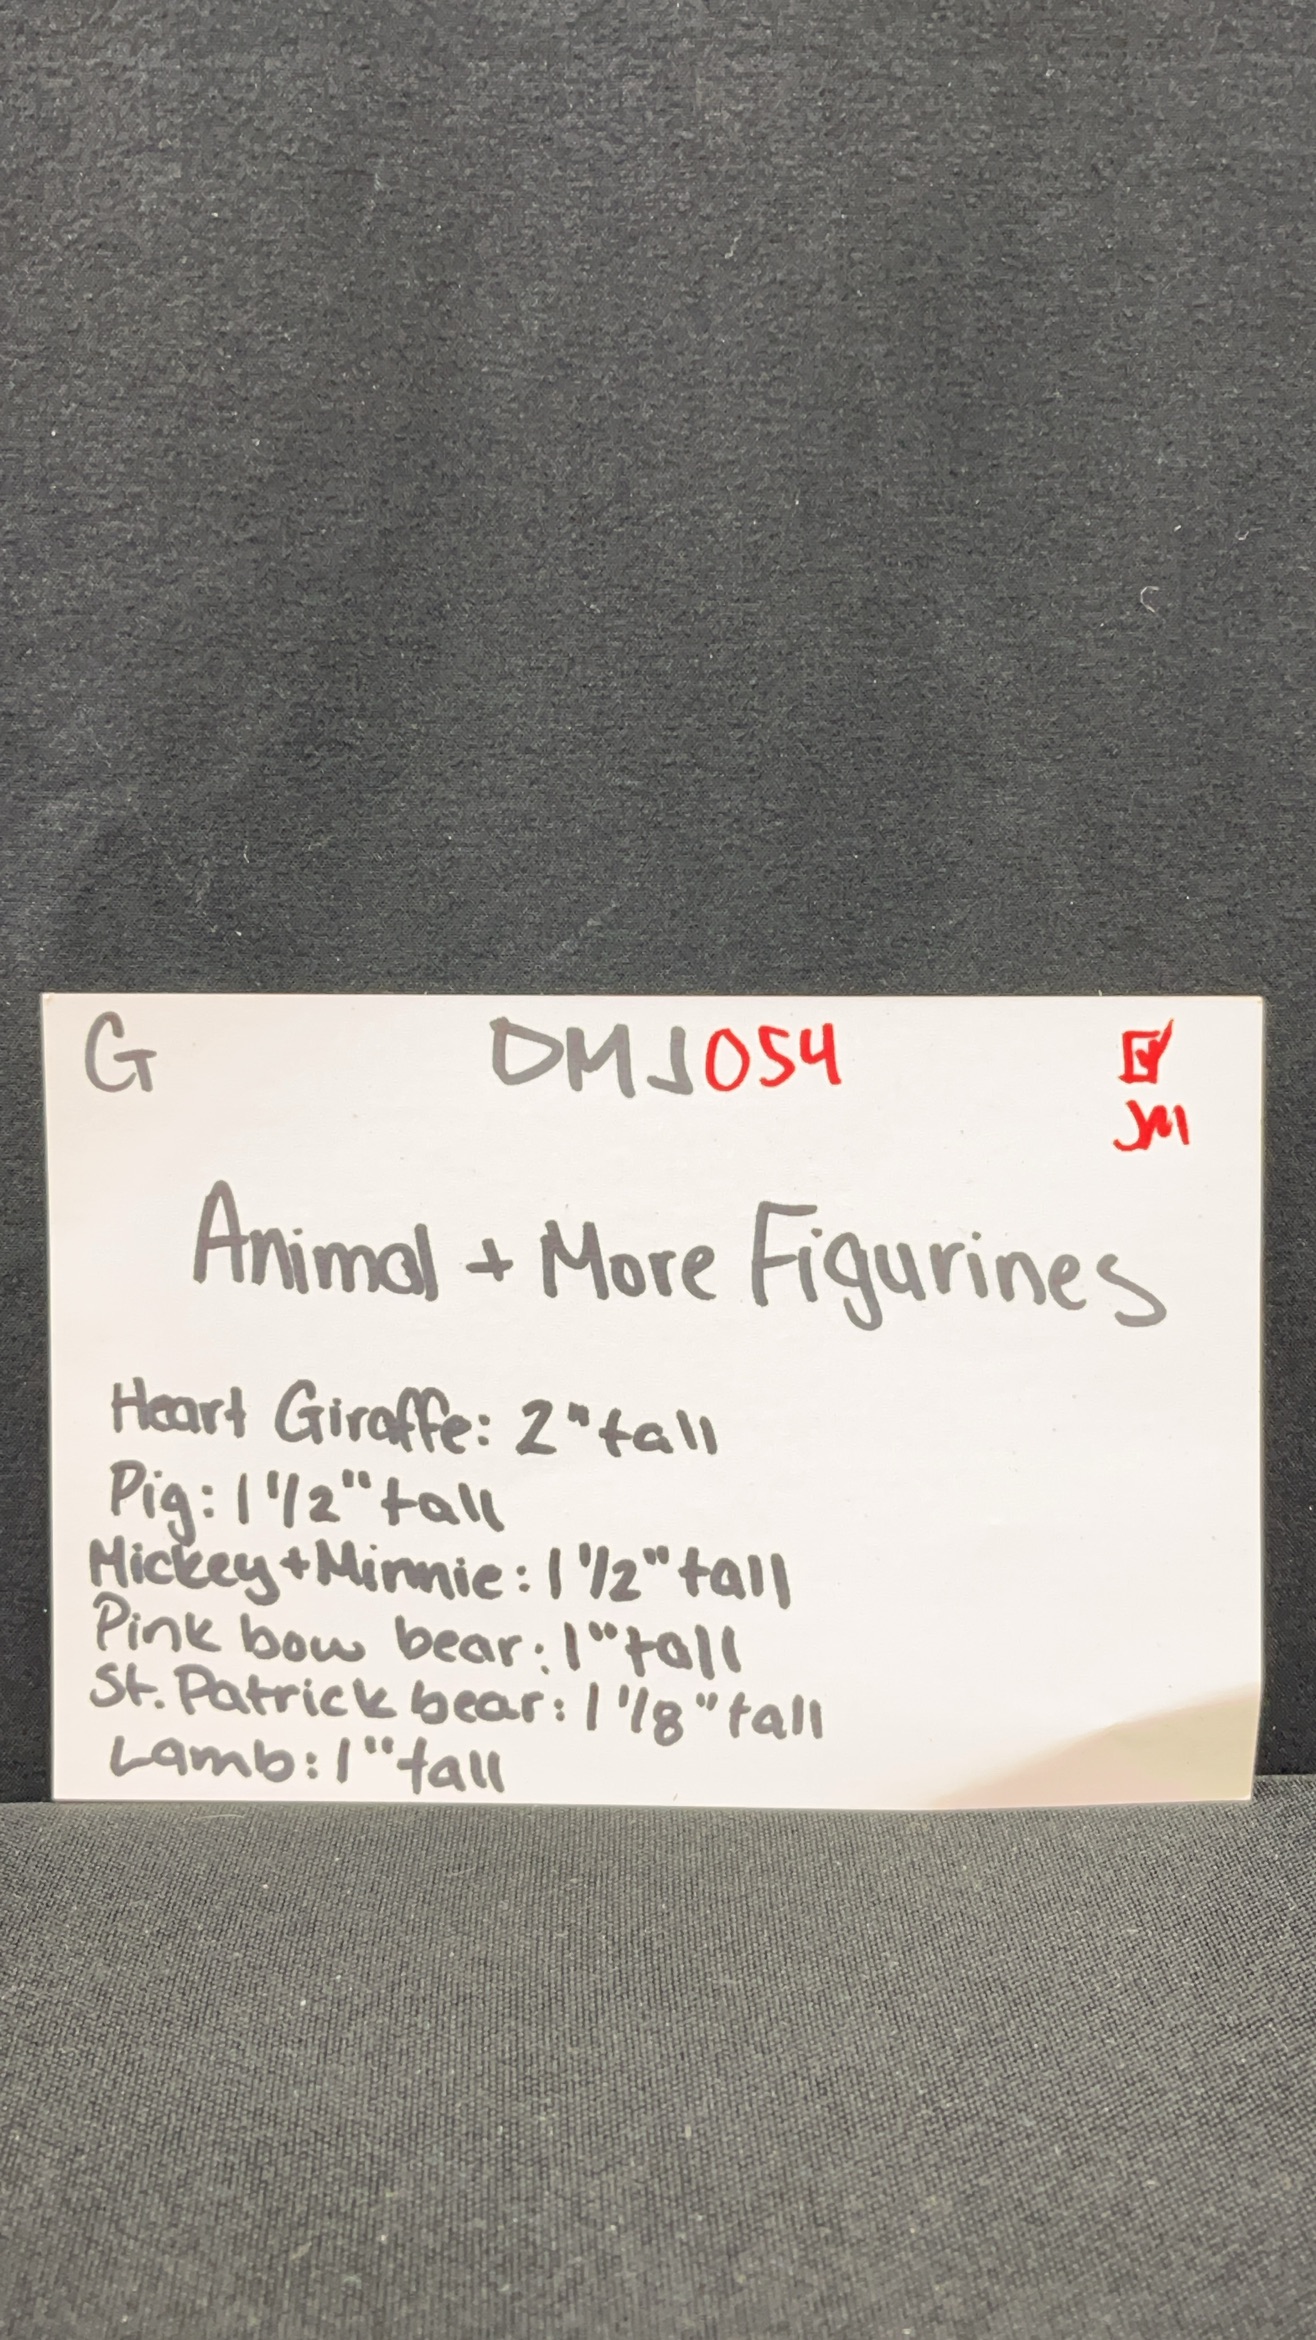 G DMJ054 ☑
JM
Animal + More Figurines
Heart Giraffe: 2" tall
Pig: 1 1/2" tall
Mickey + Minnie: 1 1/2" tall
Pink bow bear: 1" tall
St. Patrick bear: 1 1/8" tall
Lamb: 1" tall